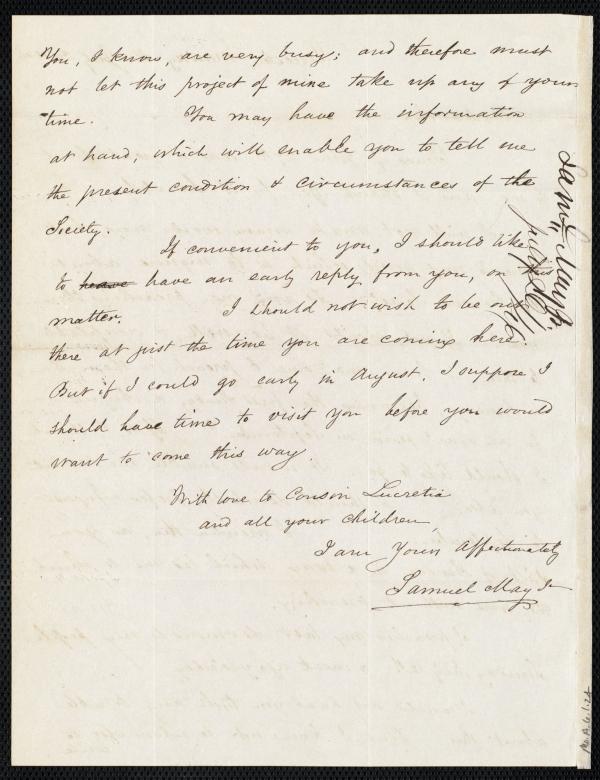 You, I know, are very busy; and therefore must
not let this project of mine take up any of your
time. You may have the information
at hand, which will enable you to tell me
the present condition & circumstances of the
Society.
If convenient to you, I should like
to heave have an early reply from you, on this
matter. I should not wish to be out
there at just the time you are coming here.
But if I could go early in August, I suppose I
should have time to visit you before you would
want to come this way.
With love to Cousin Lucretia
and all your children,
I am Yours affectionately
Samuel May Jr
Saml. May Jr.
July
Ms.A.6.1.24